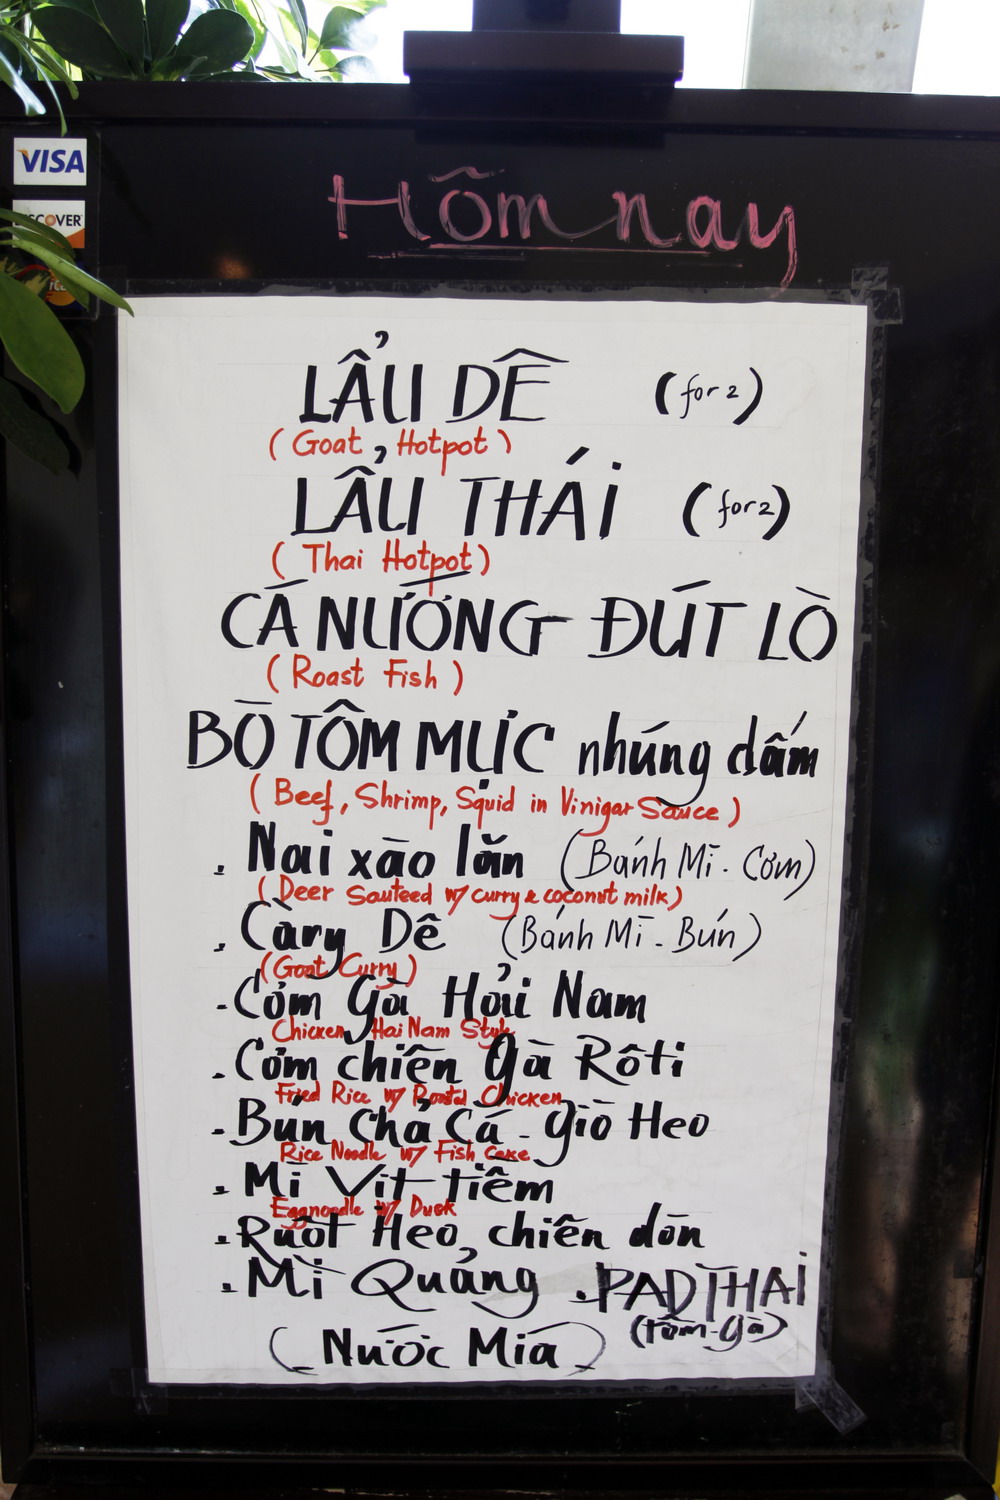 VISA
DISCOVER
Hôm nay
LẨU DÊ (for 2)
(Goat Hotpot)
LẨU THÁI (for 2)
(Thai Hotpot)
CÁ NƯỚNG ĐÚT LÒ
(Roast Fish)
BÒ TÔM MỰC nhúng dấm
(Beef, Shrimp, Squid in Vinigar Sauce)
. Nai xào lăn (Bánh Mì - Cơm)
(Deer Sauteed w/ curry & coconut milk)
. Càry Dê (Bánh Mì - Bún)
(Goat Curry)
- Cơm Gà Hải Nam
Chicken Hai Nam Style
. Cơm chiên Gà Rôti
Fried Rice w/ Roasted Chicken
- Bún Chả Cá - Giò Heo
Rice Noodle w/ Fish Cake
. Mì Vịt tiềm
Eggnoodle w/ Duck
. Ruột Heo, chiên dòn
. Mì Quảng . PAD THAI
(tôm - gà)
(Nước Mía)